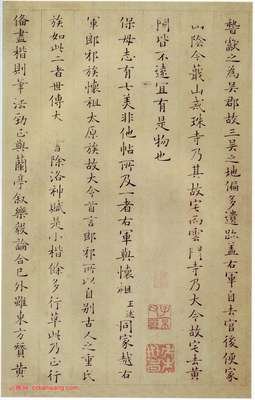 獻之為吳郡故三吳之地偏多遺跡蓋右軍自去官後便家
山陰今蕺山戒珠寺乃其故宅而雲門寺乃大令故宅去黃
閍皆不遠宜有是物也
保母志有七美非他帖所及一者右軍與懷祖王述同家越右
軍郎邪族懷祖太原族故大令首言郎邪所以自別古人之重氏
族如此二者世傳大 書除洛神賦是小楷餘多行草此乃正行
備盡楷則筆法勁正與蘭亭敘樂毅論合已外雖東方贊黃